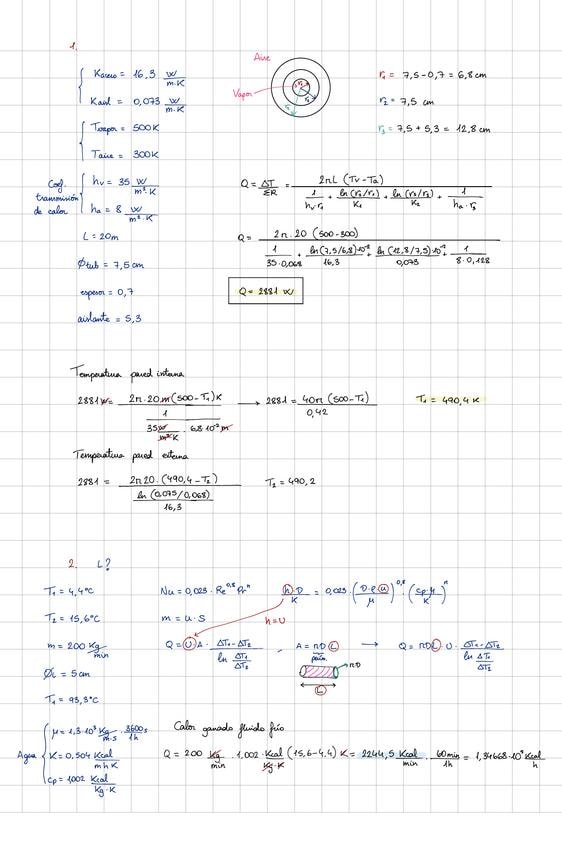 1.
Kacero = 16,3 W/m·K
Kaisl = 0,073 W/m·K
Tvapor = 500K
Taire = 300K
Coef. transmisión de calor
hv = 35 W/m²·K
ha = 8 W/m²·K
L = 20m
Øtub = 7,5cm
espesor = 0,7
aislante = 5,3
Aire
Vapor
r₁ = 7,5 - 0,7 = 6,8 cm
r₂ = 7,5 cm
r₃ = 7,5 + 5,3 = 12,8 cm
Q = ΔT/ΣR = 2πL (Tv - Ta) / (1/(hv·r₁) + ln(r₂/r₁)/K₁ + ln(r₃/r₂)/K₂ + 1/(ha·r₃))
Q = 2π·20 (500-300) / (1/(35·0,068) + ln(7,5/6,8)·10⁻²/16,3 + ln(12,8/7,5)·10⁻²/0,073 + 1/(8·0,128))
Q = 2881 W
Temperatura pared interna
2881 W = 2π·20 m (500 - T₁) K / (1/(35 W/m²K · 6,8·10⁻² m)) → 2881 = 40π (500 - T₁)/0,42
T₁ = 490,4 K
Temperatura pared externa
2881 = 2π20·(490,4 - T₂) / (ln(0,075/0,068)/16,3)
T₂ = 490,2
2. L?
T₁ = 4,4°C
T₂ = 15,6°C
m = 200 Kg/min
Øi = 5cm
T₁ = 93,3°C
Nu = 0,023 · Re^0,8 Prⁿ
h·D/K = 0,023 · (D·ρ·u/μ)^0,8 · (Cp·μ/K)ⁿ
m = u · S
h = U
Q = U A · (ΔT₁ - ΔT₂)/ln(ΔT₁/ΔT₂) , A = πD L → Q = πD L · U · (ΔT₁ - ΔT₂)/ln(ΔT₁/ΔT₂)
πD
L
Agua
μ = 1,3·10³ Kg/m·s · 3600s/1h
K = 0,504 Kcal/m h K
Cp = 1002 Kcal/Kg·K
Calor ganado fluido frío
Q = 200 Kg/min · 1,002 · Kcal/Kg·K (15,6 - 4,4) K = 2244,5 Kcal/min · 60min/1h = 1,34668·10⁵ Kcal/h